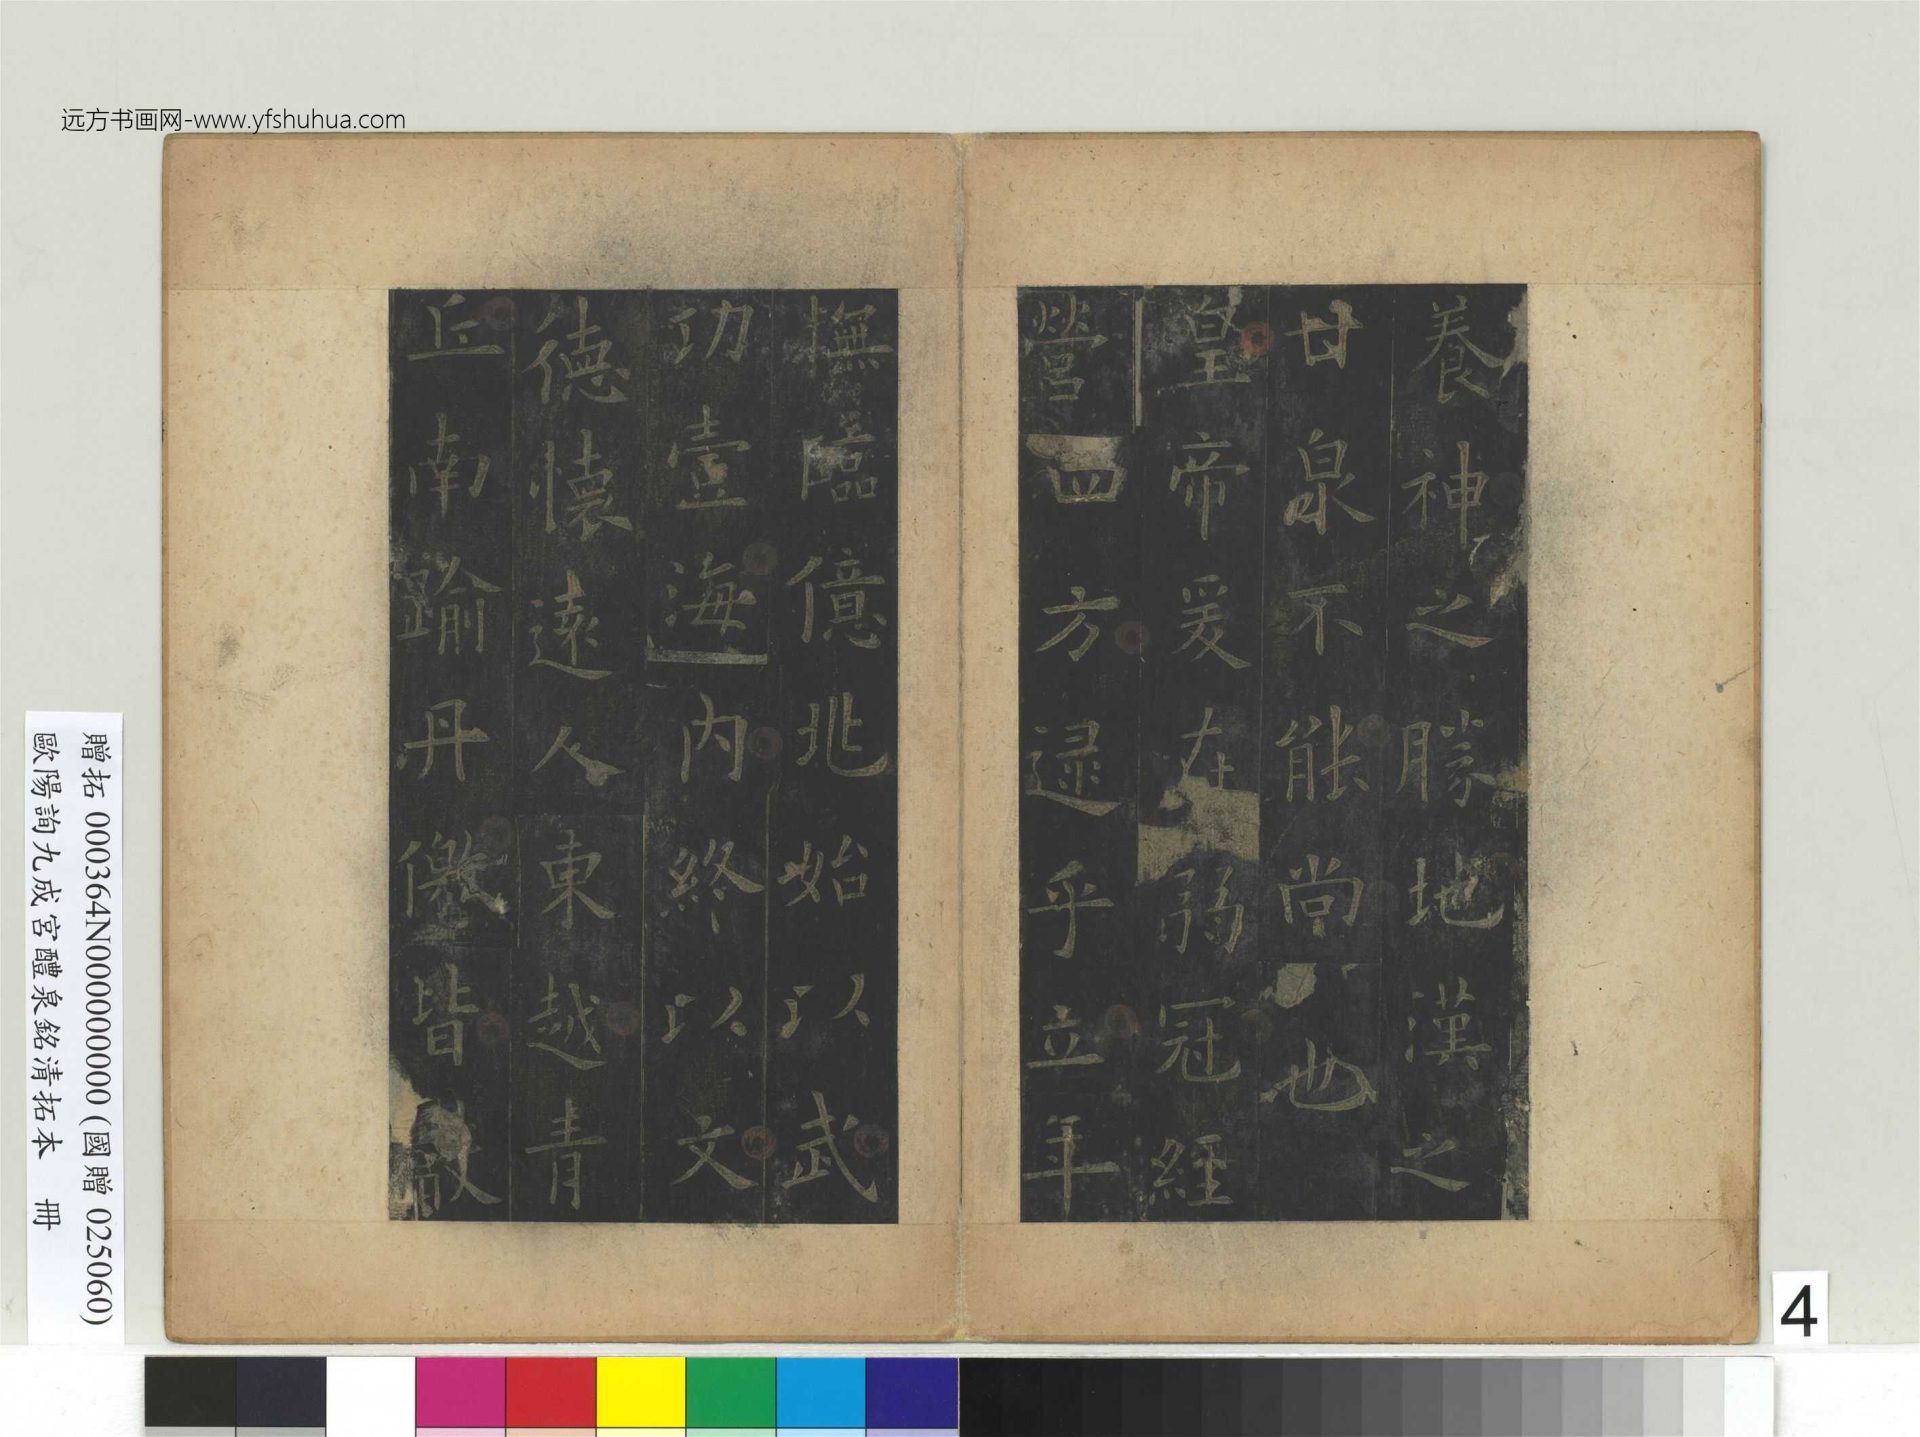 远方书画网-www.yfshuhua.com
養神之勝地漢之
甘泉不能尚也
皇帝爰在弱冠經
營四方逮乎立年
撫臨億兆始以武
功壹海內終以文
德懷遠人東越青
丘南踰丹儌皆獻
贈拓 000364N000000000 (國贈 025060)
歐陽詢九成宮醴泉銘清拓本 冊
4